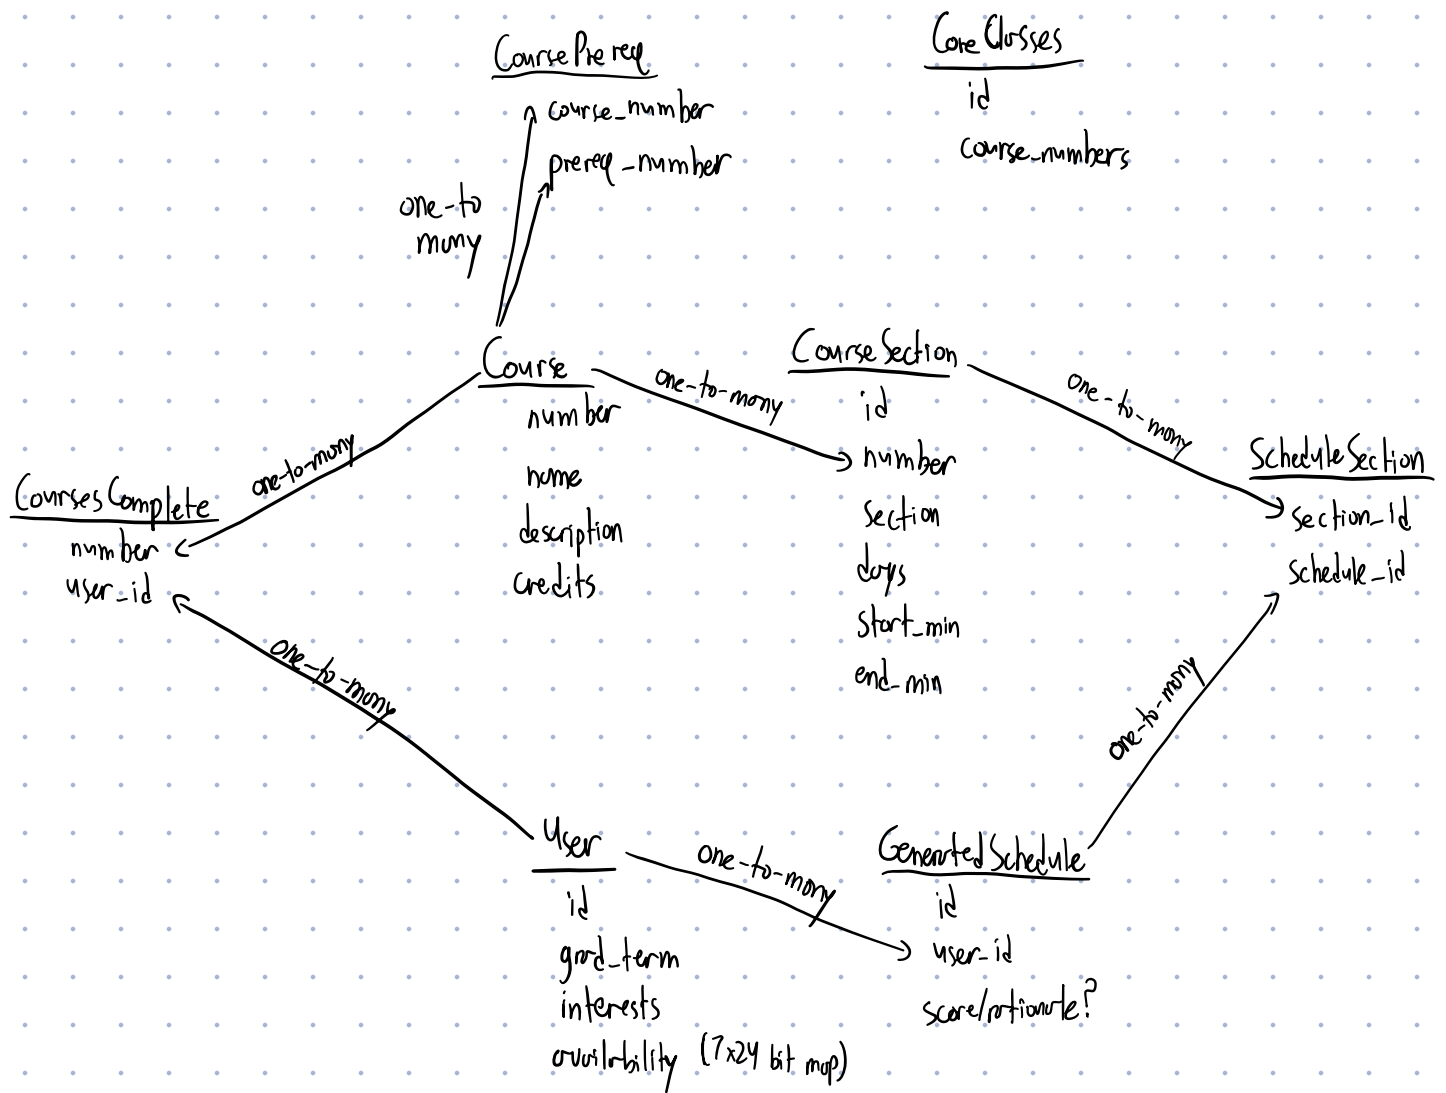 CoursePrereq
course_number
prereq_number
one-to
many
CoreClasses
id
course_numbers
Course
number
name
description
credits
one-to-many
CourseSection
id
number
section
days
start_min
end_min
one-to-many
ScheduleSection
section_id
schedule_id
one-to-many
CoursesComplete
number
user_id
one-to-many
User
id
grad_term
interests
availability (7x24 bit map)
one-to-many
GeneratedSchedule
id
user_id
score/rationale?
one-to-many